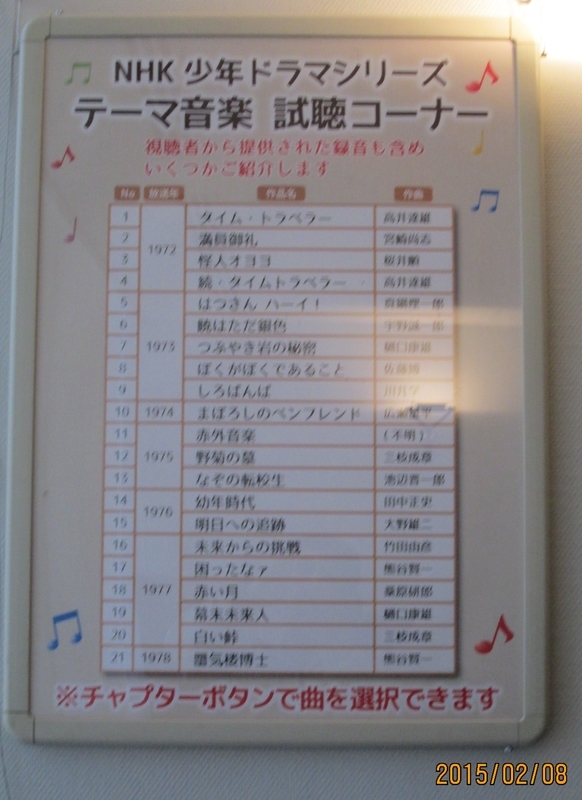 NHK 少年ドラマシリーズ
テーマ音楽 試聴コーナー
視聴者から提供された録音も含め
いくつかご紹介します
No 放送年 作品名 作曲
1 1972 タイム・トラベラー 高井達雄
2 満員御礼 宮崎尚志
3 怪人オヨヨ 桜井順
4 続・タイムトラベラー 高井達雄
5 1973 はつさん ハーイ!
6 暁はただ銀色 宇野誠一郎
7 つぶやき岩の秘密 樋口康雄
8 ぼくがぼくであること
9 しろばんば
10 1974 まぼろしのペンフレンド
11 1975 赤外音楽 (不明)
12 野菊の墓 三枝成章
13 なぞの転校生 池辺晋一郎
14 1976 幼年時代 田中正史
15 明日への追跡 大野雄二
16 1977 未来からの挑戦 竹田由彦
17 困ったなァ 熊谷賢一
18 赤い月 桑原研郎
19 幕末未来人 樋口康雄
20 白い峠 三枝成章
21 1978 蜃気楼博士 熊谷賢一
※チャプターボタンで曲を選択できます
2015/02/08